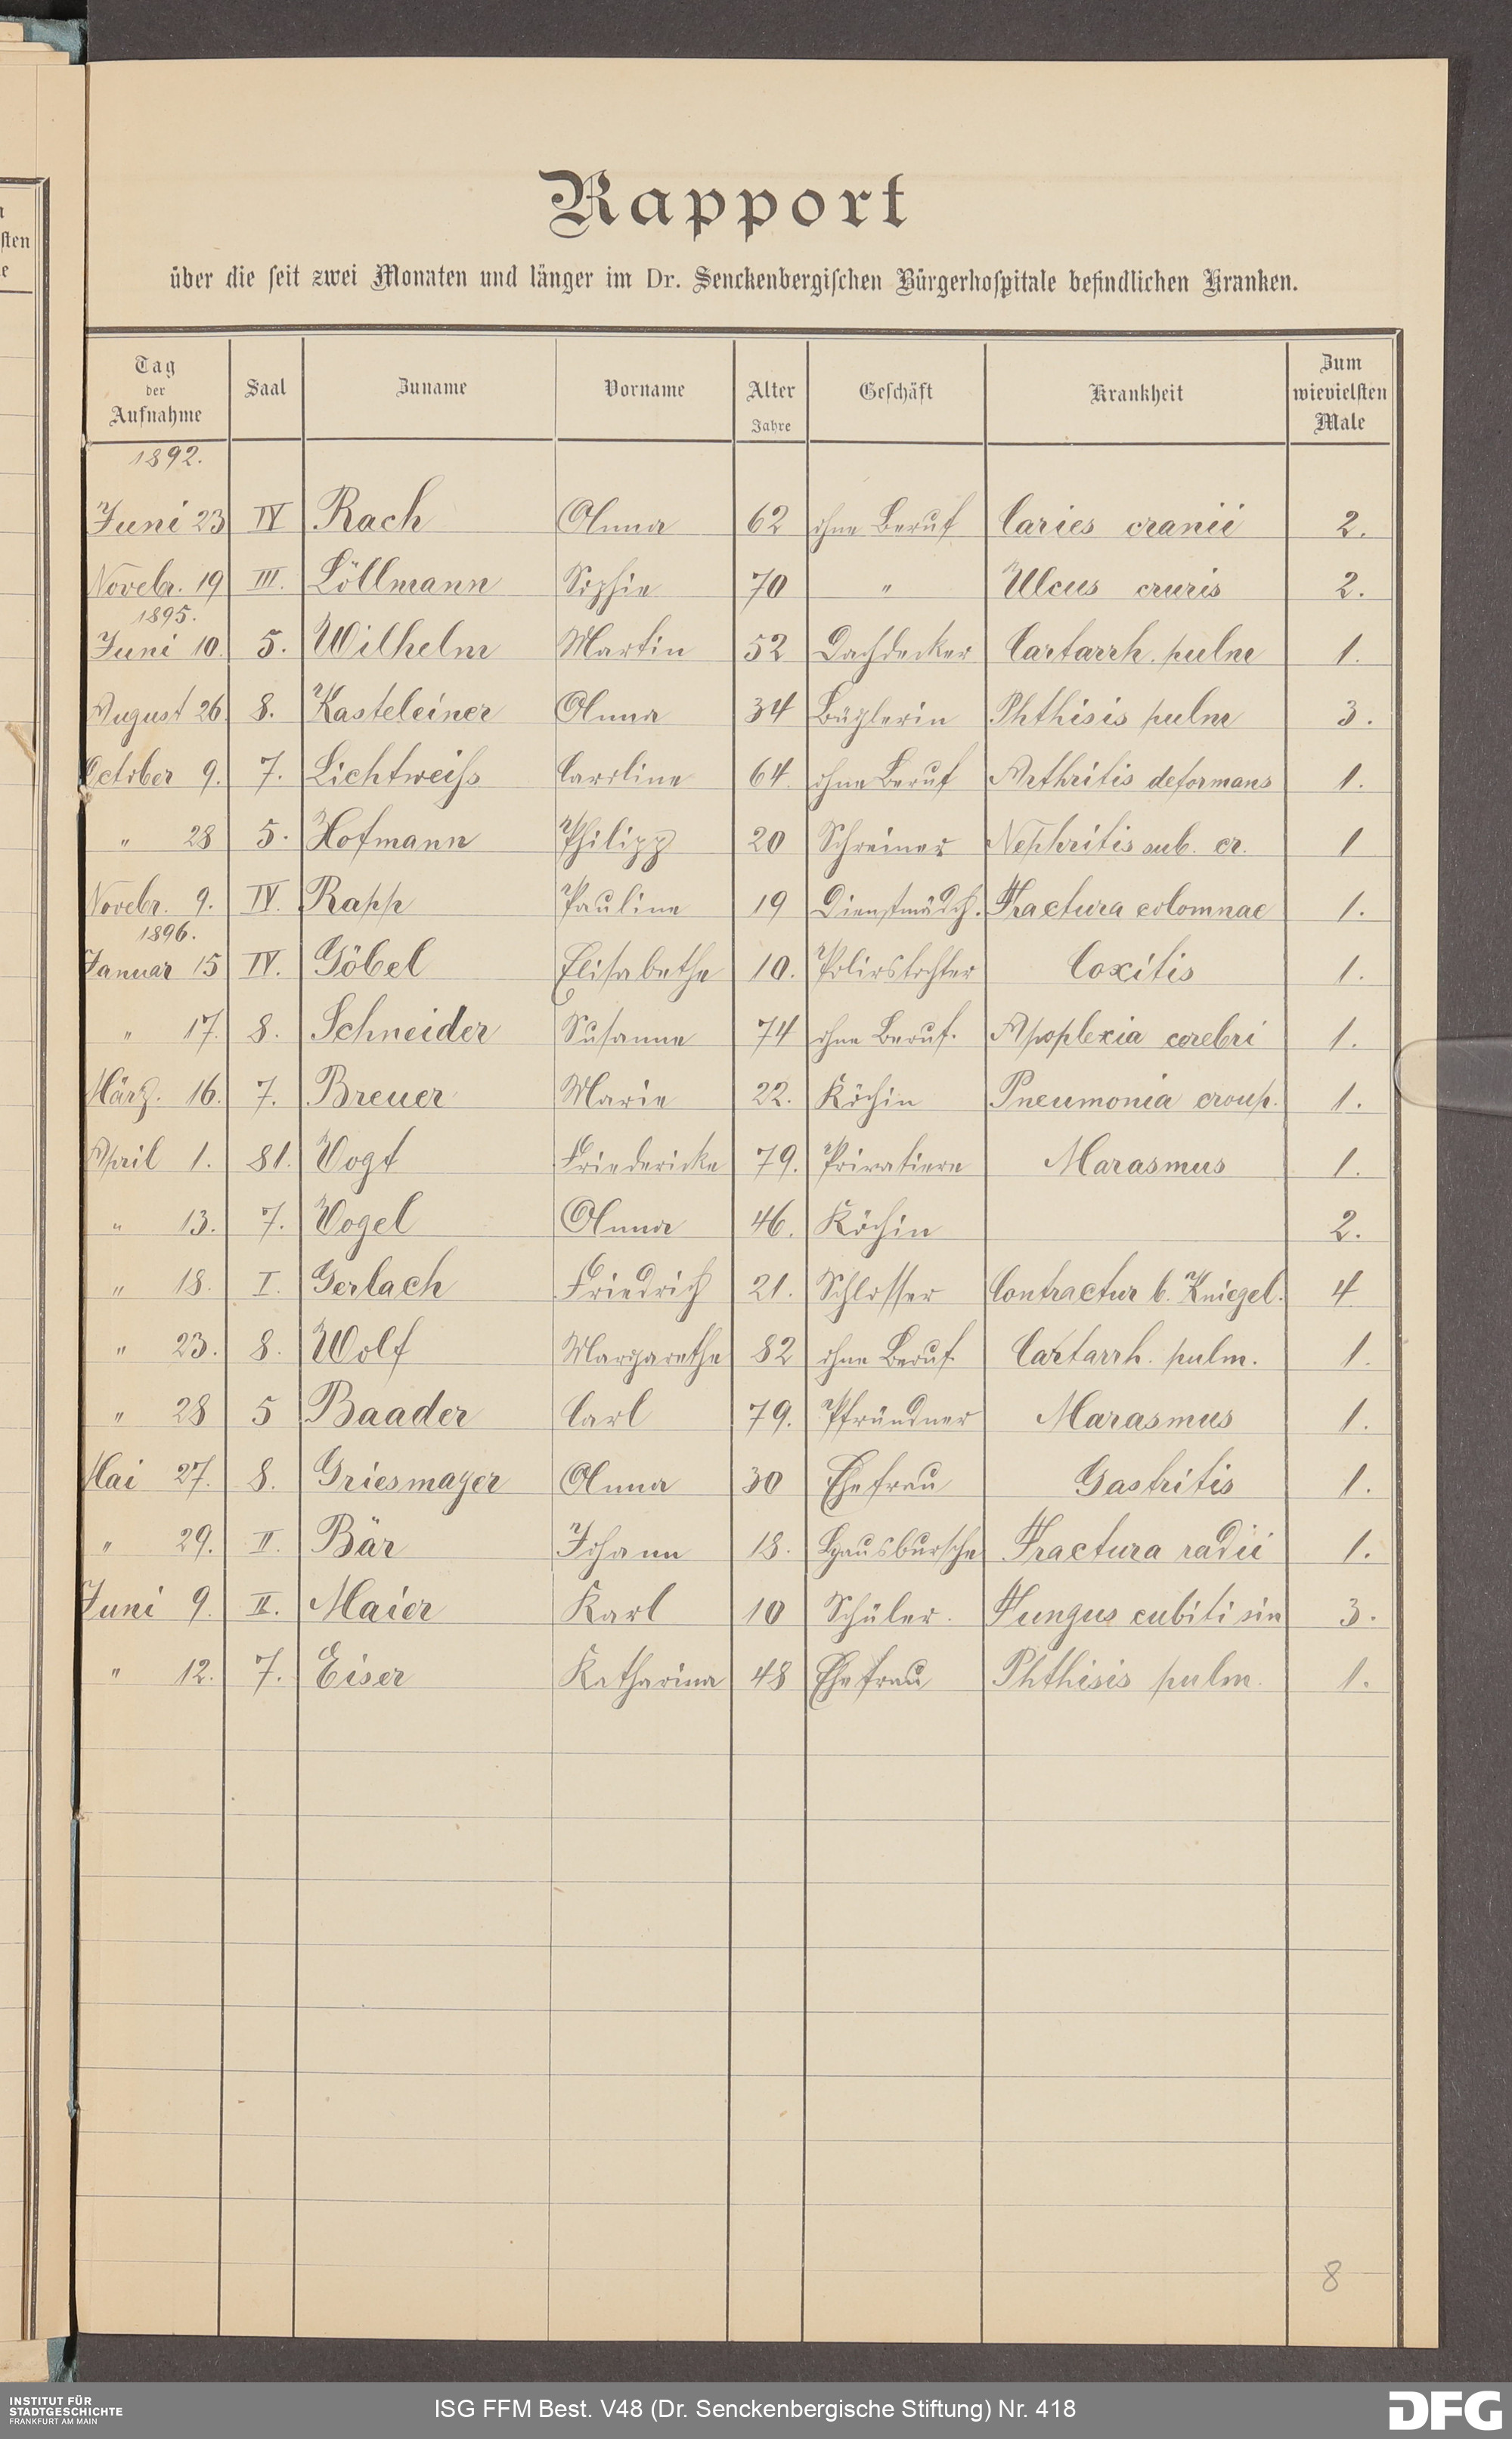 Rapport
über die seit zwei Monaten und länger im Dr. Senckenbergischen Bürgerhospitale befindlichen Kranken.
Tag der Aufnahme Saal Zuname Vorname Alter Jahre Geschäft Krankheit Zum wievielsten Male
1892.
Juni 23 IV Rach Anna 62 ohne Beruf Caries cranii 2.
Novebr. 19 III. Löllmann Sophie 70 " Ulcus cruris 2.
1895.
Juni 10. 5. Wilhelm Martin 52 Dachdecker Cartarrh. pulm 1.
August 26 8. Kasteleiner Anna 34 Büglerin Phthisis pulm 3.
October 9. 7. Lichtweiß Caroline 64. ohne Beruf Arthritis deformans 1.
" 28 5. Hofmann Philipp 20 Schreiner Nephritis sub. cr. 1
Novebr. 9. IV. Rapp Pauline 19 Dienstmädch. Fractura colomnae 1.
1896.
Januar 15 IV. Göbel Elisabethe 10. Polirstochter Coxitis 1.
" 17. 8. Schneider Susanne 74 ohne Beruf. Apoplexia cerebri 1.
März. 16. 7. Breuer Marie 22. Köchin Pneumonia croup. 1.
April 1. 81. Vogt Friedericke 79. Privatiere Marasmus 1.
" 13. 7. Vogel Anna 46. Köchin 2.
" 18. I. Gerlach Friedrich 21. Schlosser Contractur b. Kniegel. 4
" 23. 8. Wolf Margarethe 82 ohne Beruf. Cartarrh. pulm. 1.
" 28 5 Baader Carl 79. Pfründner Marasmus 1.
Mai 27. 8. Griesmayer Anna 30 Ehefrau Gastritis 1.
" 29. II. Bär Johann 18. Hausbursche Fractura radii 1.
Juni 9. II. Maier Karl 10 Schüler. Fungus cubiti sin 3.
" 12. 7. Eiser Katharina 48 Ehefrau Phthisis pulm. 1.
8
INSTITUT FÜR
STADTGESCHICHTE
FRANKFURT AM MAIN
ISG FFM Best. V48 (Dr. Senckenbergische Stiftung) Nr. 418
DFG